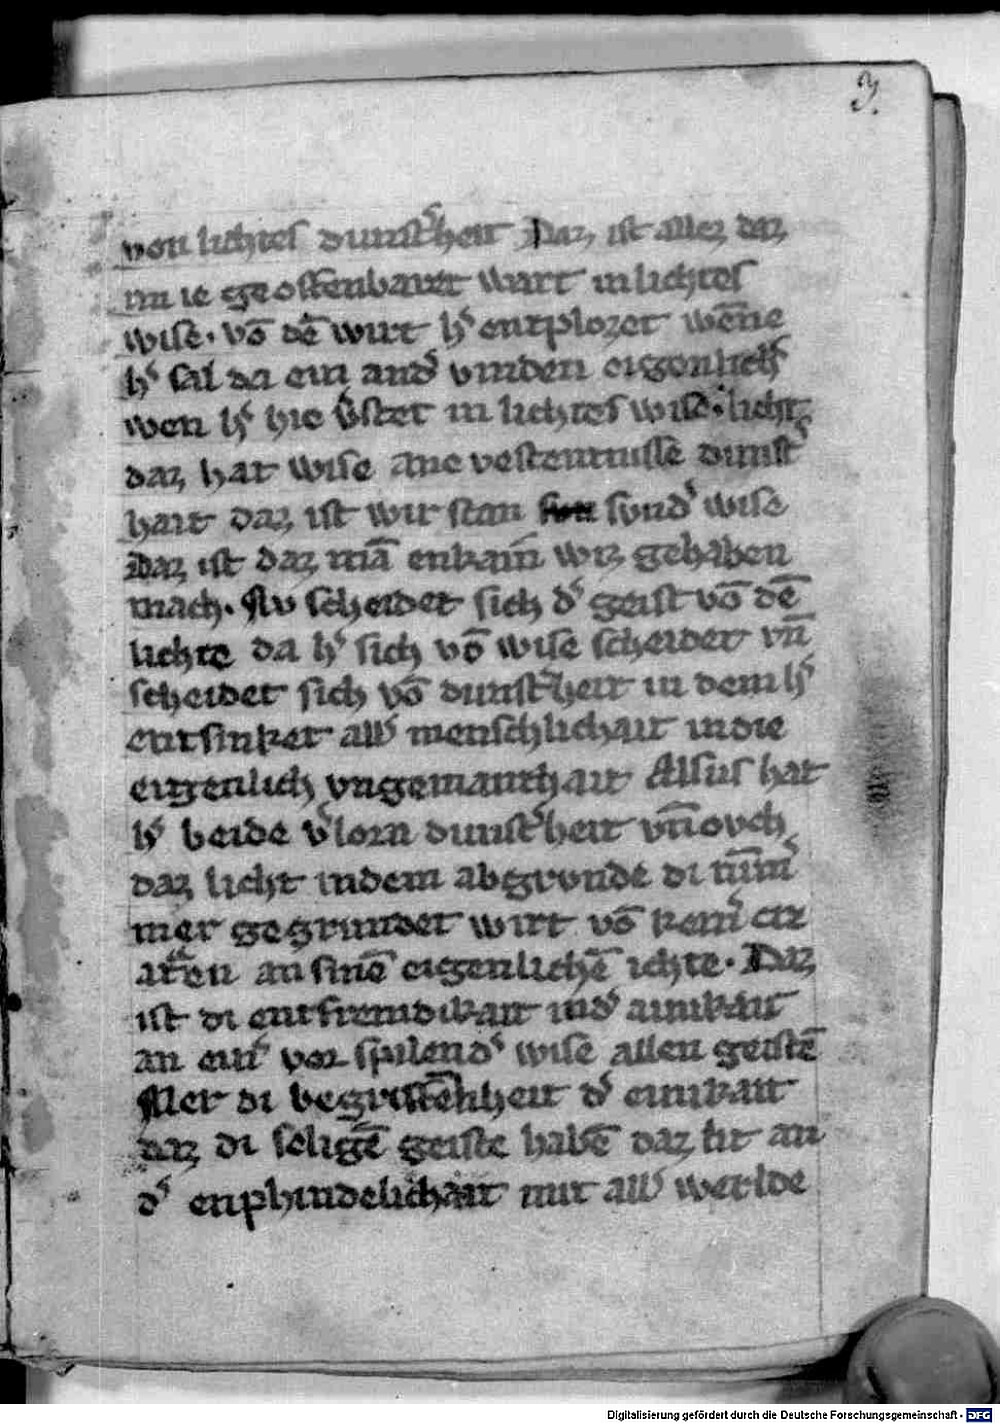 3.
von lichtes dunst͛heit Daz ist allez daz
im ie geoffenbaret wart in lichtes
wise. vō dē wirt h͛ entplozet wēne
h͛ sal da ein and͛ vinden eigenlich͛
wen h͛ hie v͛stet in lichtes wise. licht
daz hat wise ane vestentnisse dunst͛
hait daz ist wir stan sund͛ wise
Daz ist daz mā enkain wiz gehaben
mach. Nv scheidet sich d͛ geist vō dē
lichte da h͛ sich vō wise scheidet vn̄
scheidet sich vō dunst͛heit in dem h͛
entsinket all͛ menschlichait in die
eigenlich vngemanthait Alsus hat
h͛ beide v͛lorn dunst͛heit vn̄ ovch
daz licht in dem abgrvnde di nūm͛
mer gegrundet wirt vō kein͛ cre
atᵉen an sinē eigenlichē ichte. Daz
ist di entfremdikait ind͛ ainikait
an ein͛ vor spilend͛ wise allen geistē
Mer di begriffēnheit d͛ einikait
daz di seligē geiste habē daz lit an
d͛ enphindelichait mit all͛ werlde
Digitalisierung gefördert durch die Deutsche Forschungsgemeinschaft - DFG